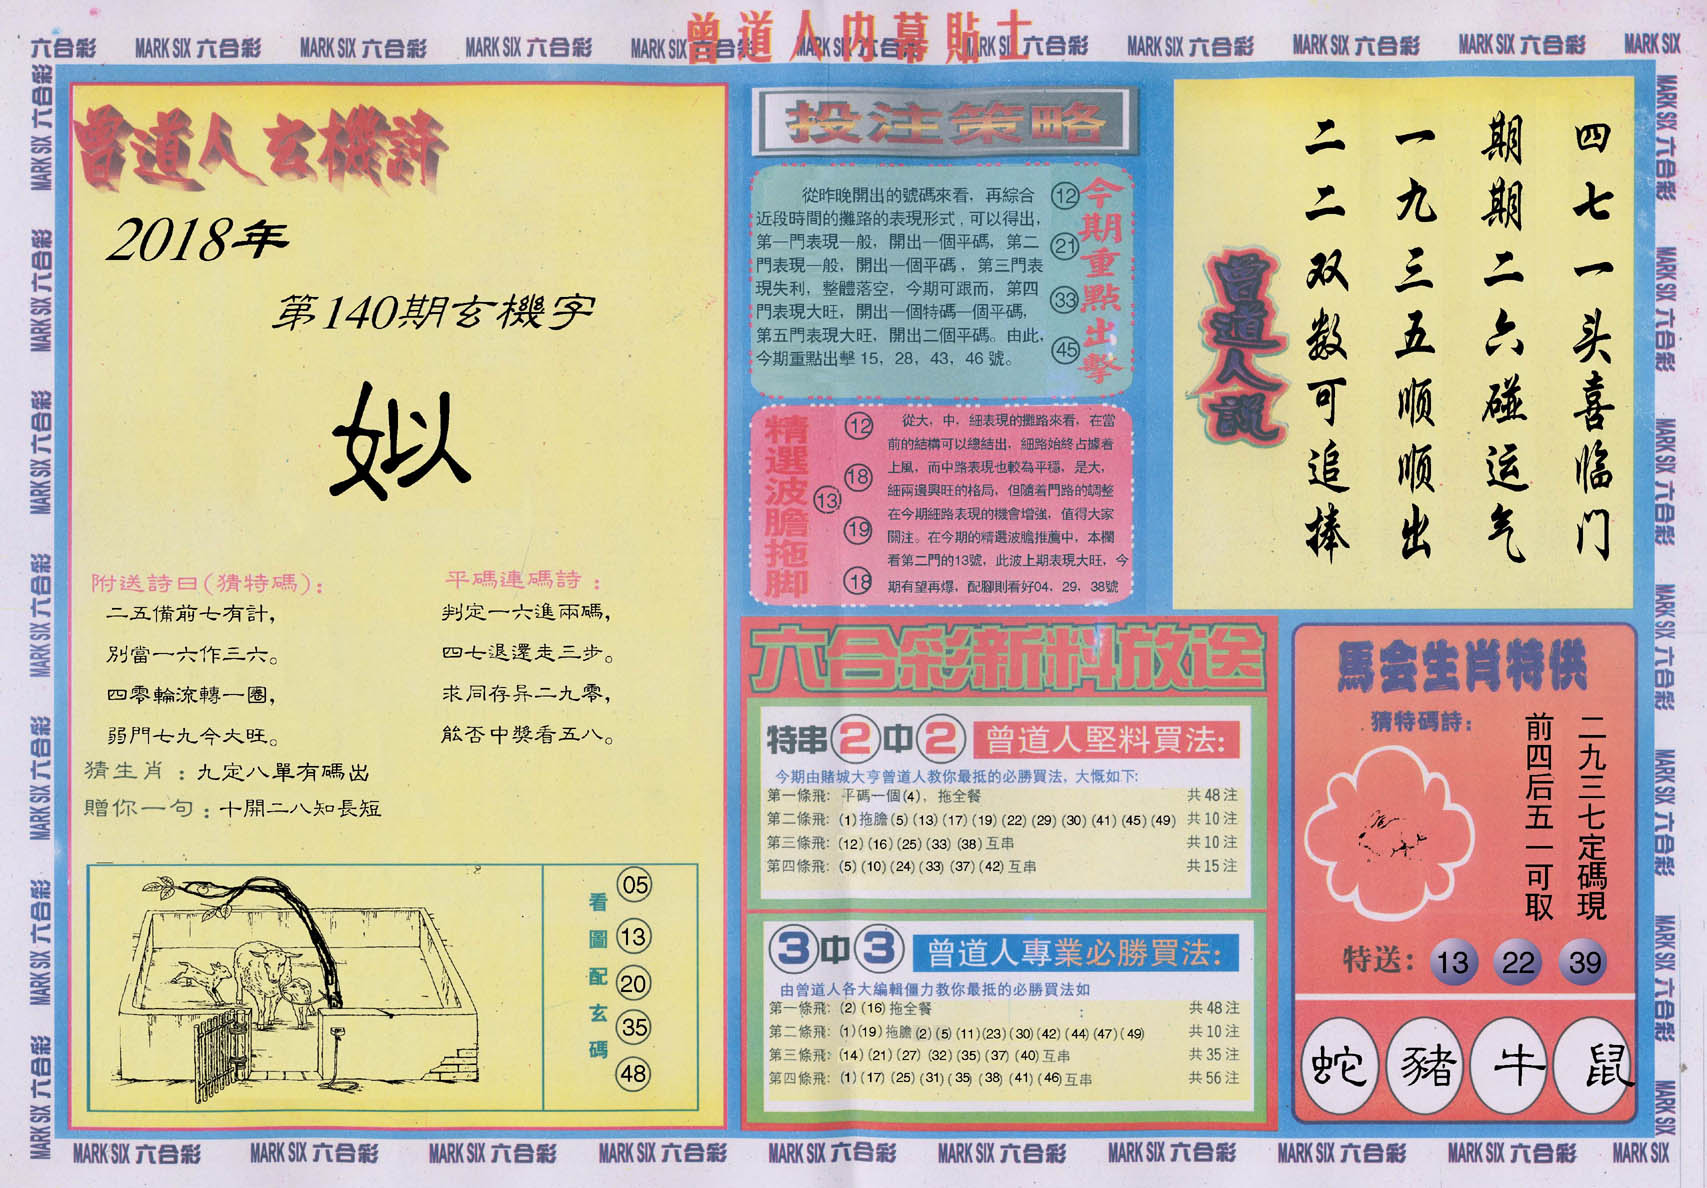 曾道人内幕貼士
六合彩 MARK SIX 六合彩 MARK SIX 六合彩 MARK SIX 六合彩 MARK SIX 六合彩 MARK SIX 六合彩 MARK SIX 六合彩 MARK SIX 六合彩 MARK SIX 六合彩 MARK SIX 六合彩 MARK SIX
曾道人玄機詩
2018年
第140期玄機字
姒
附送詩曰(猜特碼):
二五備前七有計,
別當一六作三六。
四零輪流轉一圈,
弱門七九今大旺。
平碼連碼詩:
判定一六進兩碼,
四七退還走三步。
求同存异二九零,
能否中獎看五八。
猜生肖:九定八單有碼出
贈你一句:十開二八知長短
看圖配玄碼
05
13
20
35
48
投注策略
從昨晚開出的號碼來看，再綜合
近段時間的攤路的表現形式,可以得出,
第一門表現一般，開出一個平碼，第二
門表現一般，開出一個平碼，第三門表
現失利，整體落空，今期可跟而，第四
門表現大旺，開出一個特碼一個平碼，
第五門表現大旺，開出二個平碼。由此,
今期重點出擊 15，28，43，46 號。
12
21
33
45
今期重點出擊
精選波膽拖脚
12
18
13
19
18
從大，中，細表現的攤路來看，在當
前的結構可以總結出，細路始終占據着
上風，而中路表現也較為平穩，是大，
細兩邊興旺的格局，但隨着門路的調整
在今期細路表現的機會增強，值得大家
關注。在今期的精選波膽推薦中，本欄
看第二門的13號，此波上期表現大旺，今
期有望再爆，配腳則看好04，29，38號
四七一头喜临门
期期二六碰运气
一九三五顺顺出
二二双数可追捧
曾道人説
六合彩新料放送
特串2中2 曾道人堅料買法:
今期由賭城大亨曾道人教你最抵的必勝買法，大慨如下:
第一條飛: 平碼一個(4)，拖全餐 共48注
第二條飛: (1)拖膽(5)(13)(17)(19)(22)(29)(30)(41)(45)(49) 共10注
第三條飛: (12)(16)(25)(33)(38)互串 共10注
第四條飛: (5)(10)(24)(33)(37)(42)互串 共15注
3中3 曾道人專業必勝買法:
由曾道人各大編輯僵力教你最抵的必勝買法如
第一條飛: (2)(16)拖全餐 : 共48注
第二條飛: (1)(19)拖膽(2)(5)(11)(23)(30)(42)(44)(47)(49) 共10注
第三條飛: (14)(21)(27)(32)(35)(37)(40)互串 共35注
第四條飛: (1)(17)(25)(31)(35)(38)(41)(46)互串 共56注
馬会生肖特供
猜特碼詩:
二九三七定碼現
前四后五一可取
特送: 13 22 39
蛇 豬 牛 鼠
MARK SIX 六合彩 MARK SIX 六合彩 MARK SIX 六合彩 MARK SIX 六合彩 MARK SIX 六合彩 MARK SIX 六合彩 MARK SIX 六合彩 MARK SIX 六合彩 MARK SIX 六合彩 MARK SIX
MARK SIX 六合彩 MARK SIX 六合彩 MARK SIX 六合彩 MARK SIX 六合彩 MARK SIX 六合彩 MARK SIX 六合彩 MARK SIX 六合彩
MARK SIX 六合彩 MARK SIX 六合彩 MARK SIX 六合彩 MARK SIX 六合彩 MARK SIX 六合彩 MARK SIX 六合彩 MARK SIX